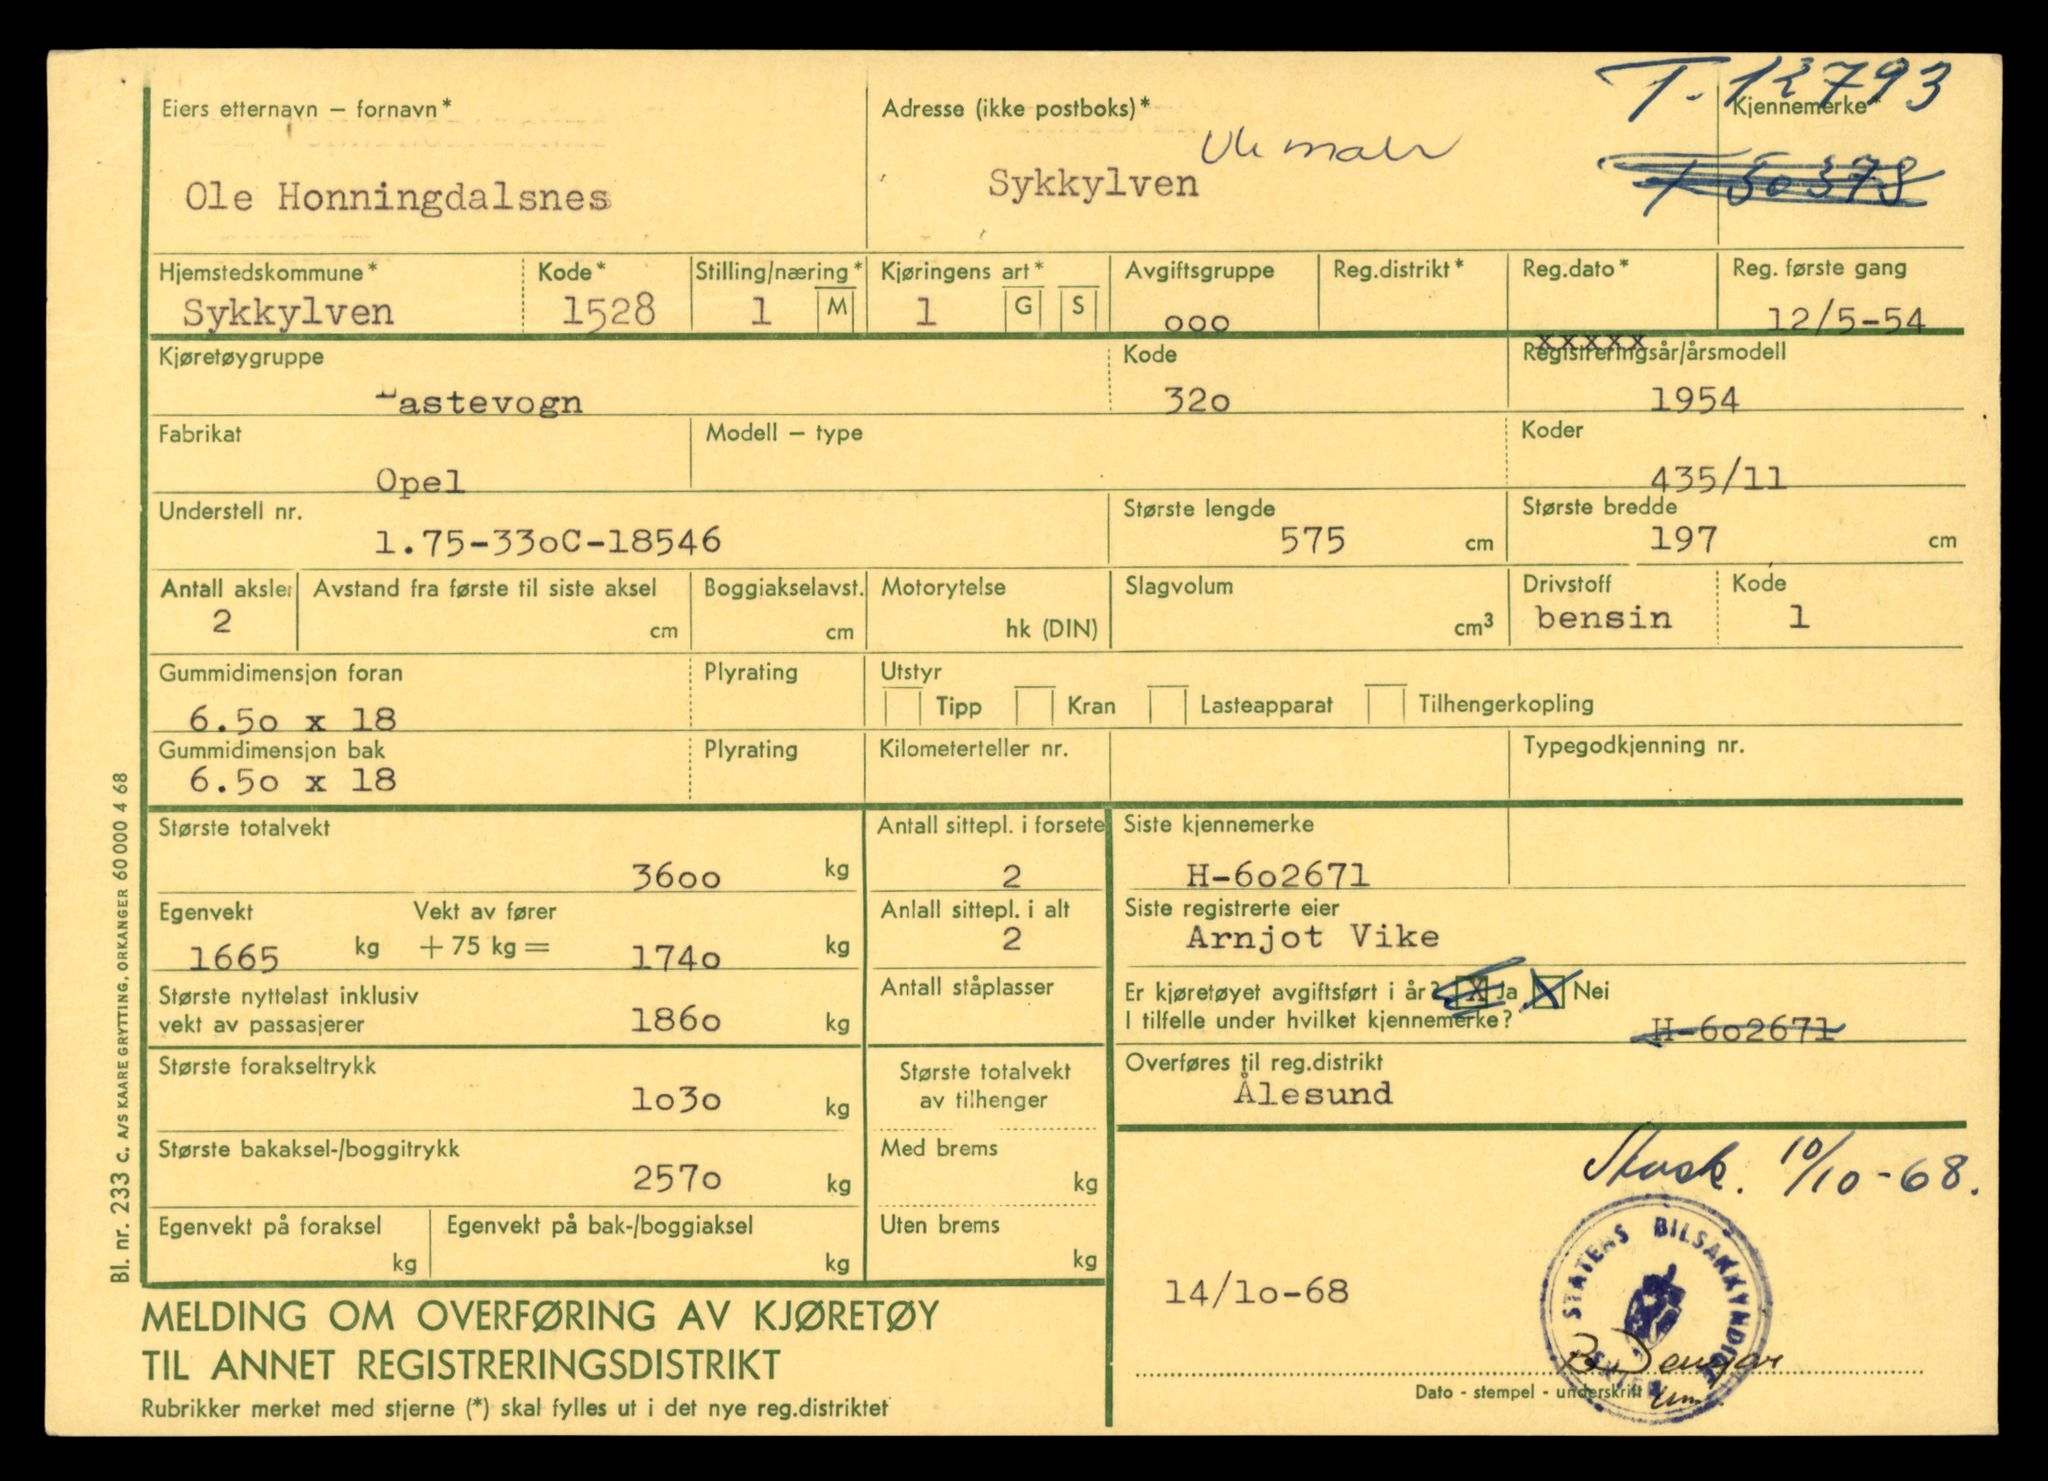 T-12793
Eiers etternavn – fornavn*
Adresse (ikke postboks)*
Kjennemerke*
Ole Honningdalsnes
Sykkylven
T 50378
Hjemstedskommune*
Kode*
Stilling/næring*
Kjøringens art*
Avgiftsgruppe
Reg.distrikt*
Reg.dato*
Reg. første gang
Sykkylven
1528
1 M
1 G S
ooo
12/5-54
xxxxx
Kjøretøygruppe
Kode
Registreringsår/årsmodell
Lastevogn
32o
1954
Fabrikat
Modell – type
Koder
Opel
435/11
Understell nr.
Største lengde
Største bredde
1.75-33oC-18546
575 cm
197 cm
Antall aksler
Avstand fra første til siste aksel
Boggiakselavst.
Motorytelse
Slagvolum
Drivstoff
Kode
2
cm
cm
hk (DIN)
cm³
bensin
1
Gummidimensjon foran
Plyrating
Utstyr
6.5o x 18
Tipp
Kran
Lasteapparat
Tilhengerkopling
Gummidimensjon bak
Plyrating
Kilometerteller nr.
Typegodkjenning nr.
6.5o x 18
Største totalvekt
Antall sittepl. i forsete
Siste kjennemerke
36oo kg
2
H-6o2671
Egenvekt
Vekt av fører
Anlall sittepl. i alt
Siste registrerte eier
1665 kg
+ 75 kg =
174o kg
2
Arnjot Vike
Største nyttelast inklusiv
vekt av passasjerer
186o kg
Antall ståplasser
Er kjøretøyet avgiftsført i år? X Ja X Nei
I tilfelle under hvilket kjennemerke?
H-6o2671
Største forakseltrykk
1o3o kg
Største totalvekt
av tilhenger
Overføres til reg.distrikt
Ålesund
Største bakaksel-/boggitrykk
257o kg
Med brems
kg
10/10-68.
Egenvekt på foraksel
kg
Egenvekt på bak-/boggiaksel
kg
Uten brems
kg
STATENS BILSAKKYNDIGE
14/1o-68
Dato - stempel - underskrift
MELDING OM OVERFØRING AV KJØRETØY
TIL ANNET REGISTRERINGSDISTRIKT
Rubrikker merket med stjerne (*) skal fylles ut i det nye reg.distriktet
Bl. nr. 233 c. A/S KAARE GRYTTING, ORKANGER 60 000 4 68